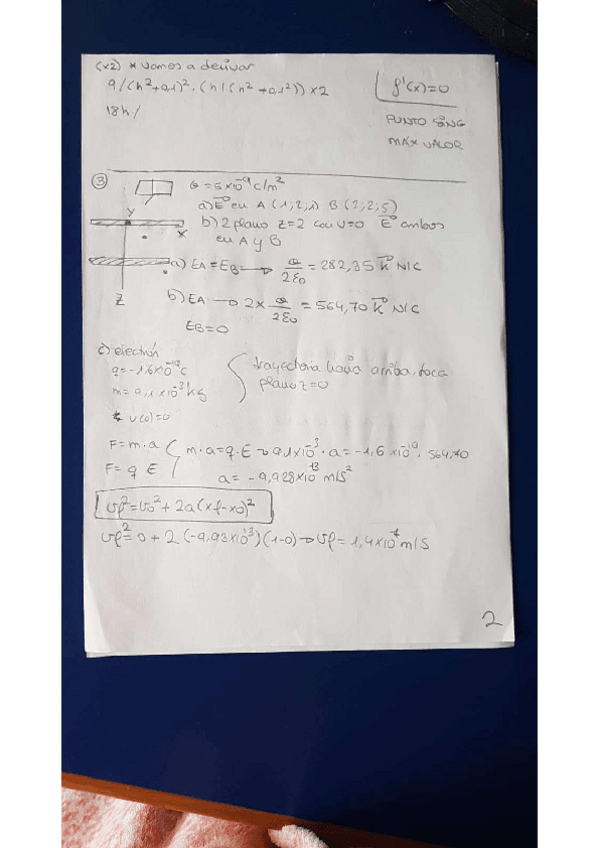 (x2) * vamos a derivar
9/(h²+0,1)² · (h/(h²+0,1²)) x2
18h/
f'(x)=0
PUNTO SING
MÁX VALOR
③
σ = 5x10⁻⁹ c/m²
a) E en A (1,2,1) B (2,2,5)
b) 2 plano z=2 con σ=0 E ambos
en A y B
Y
X
Z
a) EA = EB → σ/2ε₀ = 282,35 k N/C
b) EA → 2x σ/2ε₀ = 564,70 k N/C
EB=0
c) electrón
q=-1,6x10⁻¹⁹ c
m= 9,1x10⁻³ kg
v(0)=0
trayectoria hacia arriba, toca
plano z=0
F=m·a
F= q E
m·a=q·E → 9,1x10⁻³·a=-1,6x10⁻¹⁹· 564,70
a= -9,928x10¹³ m/s²
vf²=vo²+2a(xf-xo)²
vf²=0+2(-9,93x10¹³)(1-0)→vf=1,4x10⁷m/s
2